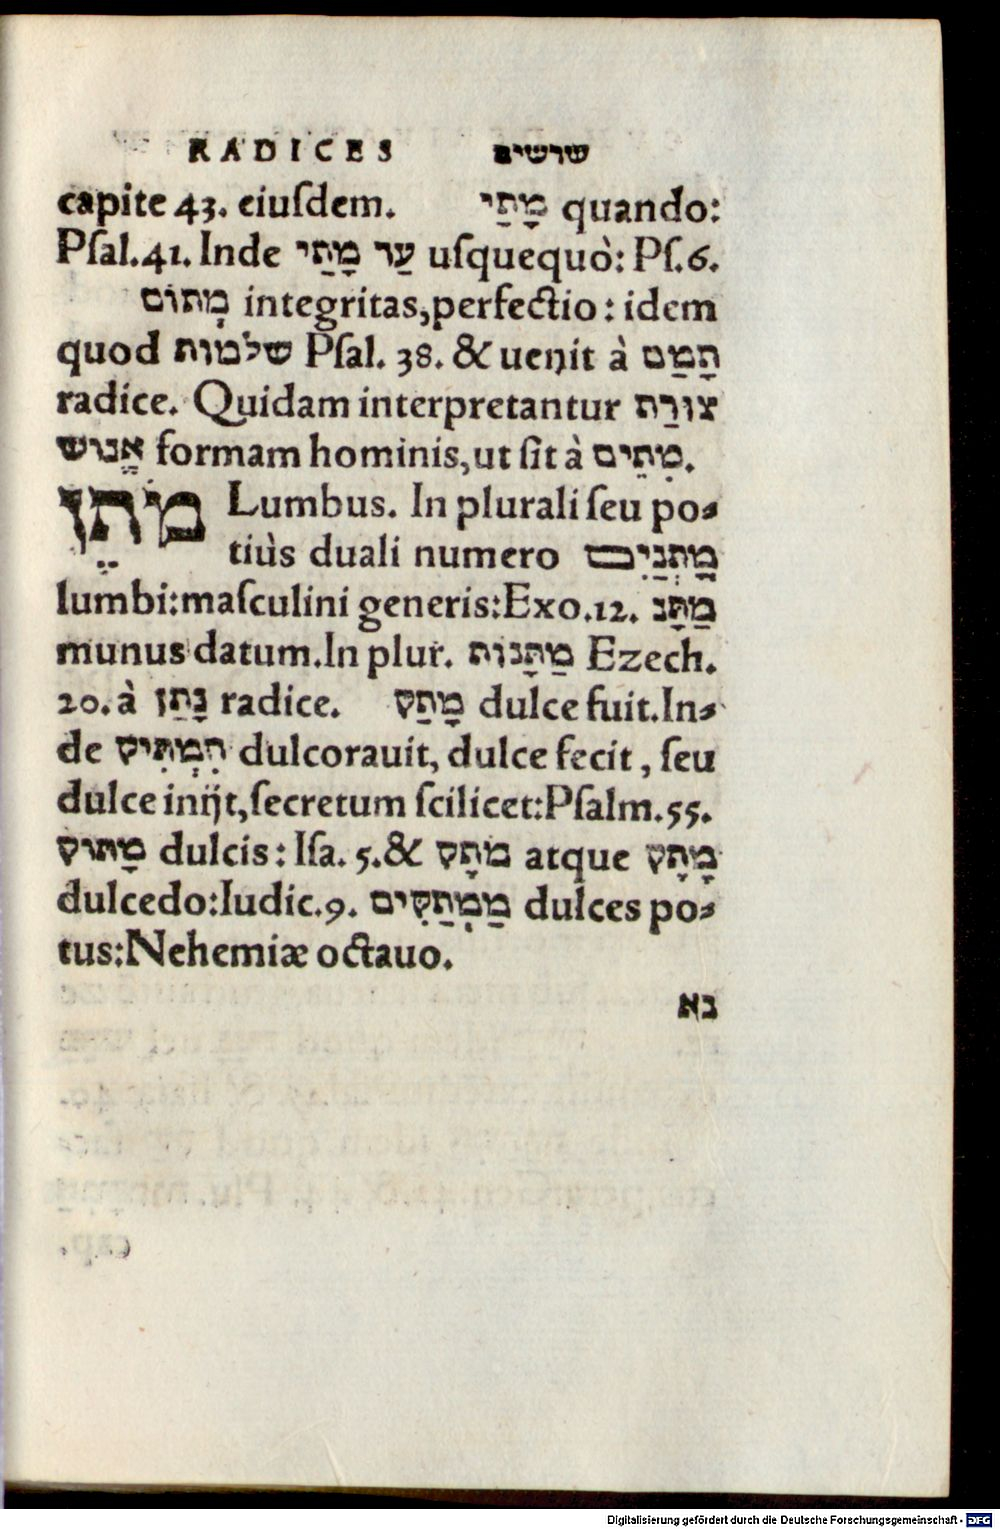 RADICES שרשים
capite 43. eiuſdem. מָתַי quando:
Pſal.41. Inde עַד מָתַי uſquequò: Pſ.6.
מְתוֹם integritas, perfectio: idem
quod שלמות Pſal. 38. & uenit à תָּמַם
radice. Quidam interpretantur צורַת
אֱנוש formam hominis, ut ſit à מְתִים.
מֹתֶן Lumbus. In plurali ſeu po⸗
tiùs duali numero מָתְנַיִם
lumbi: maſculini generis: Exo.12. מַתָּנ
munus datum. In plur. מַתָּנות Ezech.
20. à נָתַן radice. מָתַק dulce fuit. In⸗
de הִמְתִּיק dulcorauit, dulce fecit, ſeu
dulce inijt, ſecretum ſcilicet: Pſalm.55.
מָתוק dulcis: Iſa. 5. & מתָק atque מָתָק
dulcedo: Iudic.9. מַמְתַקִּים dulces po⸗
tus: Nehemiæ octauo.
נא
Digitalisierung gefördert durch die Deutsche Forschungsgemeinschaft - DFG